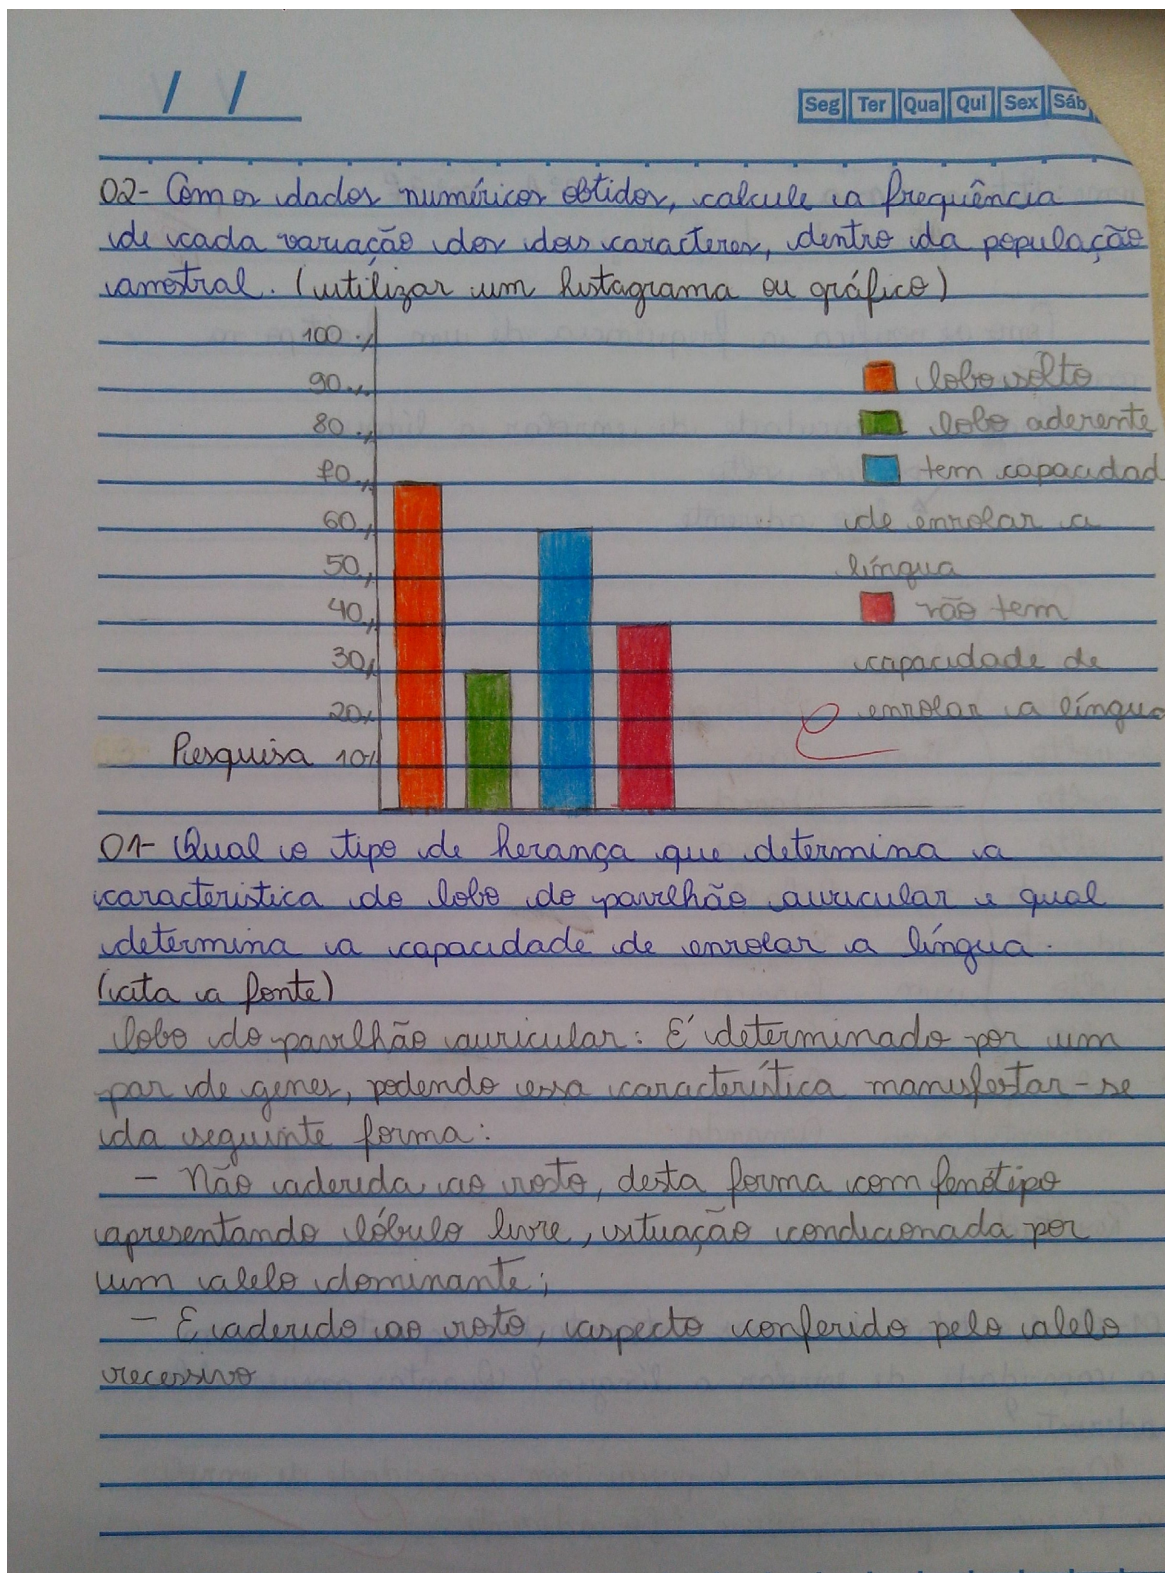 / /
Seg Ter Qua Qui Sex Sáb
02- Com os dados numéricos obtidos, calcule a frequência
de cada variação dos dois caracteres, dentro da população
amostral. (utilizar um histograma ou gráfico)
100%
90%
80%
70%
60%
50%
40%
30%
20%
10%
lobo solto
lobo aderente
tem capacidad
de enrolar a
língua
não tem
capacidade de
enrolar a língua
Pesquisa
01- Qual o tipo de herança que determina a
característica do lobo do pavilhão auricular e qual
determina a capacidade de enrolar a língua.
(cita a fonte)
lobo do pavilhão auricular: É determinado por um
par de genes, podendo essa característica manifestar-se
da seguinte forma:
- Não aderida ao rosto, desta forma com fenótipo
apresentando lóbulo livre, situação condicionada por
um alelo dominante;
- E aderido ao rosto, aspecto conferido pelo alelo
recessivo